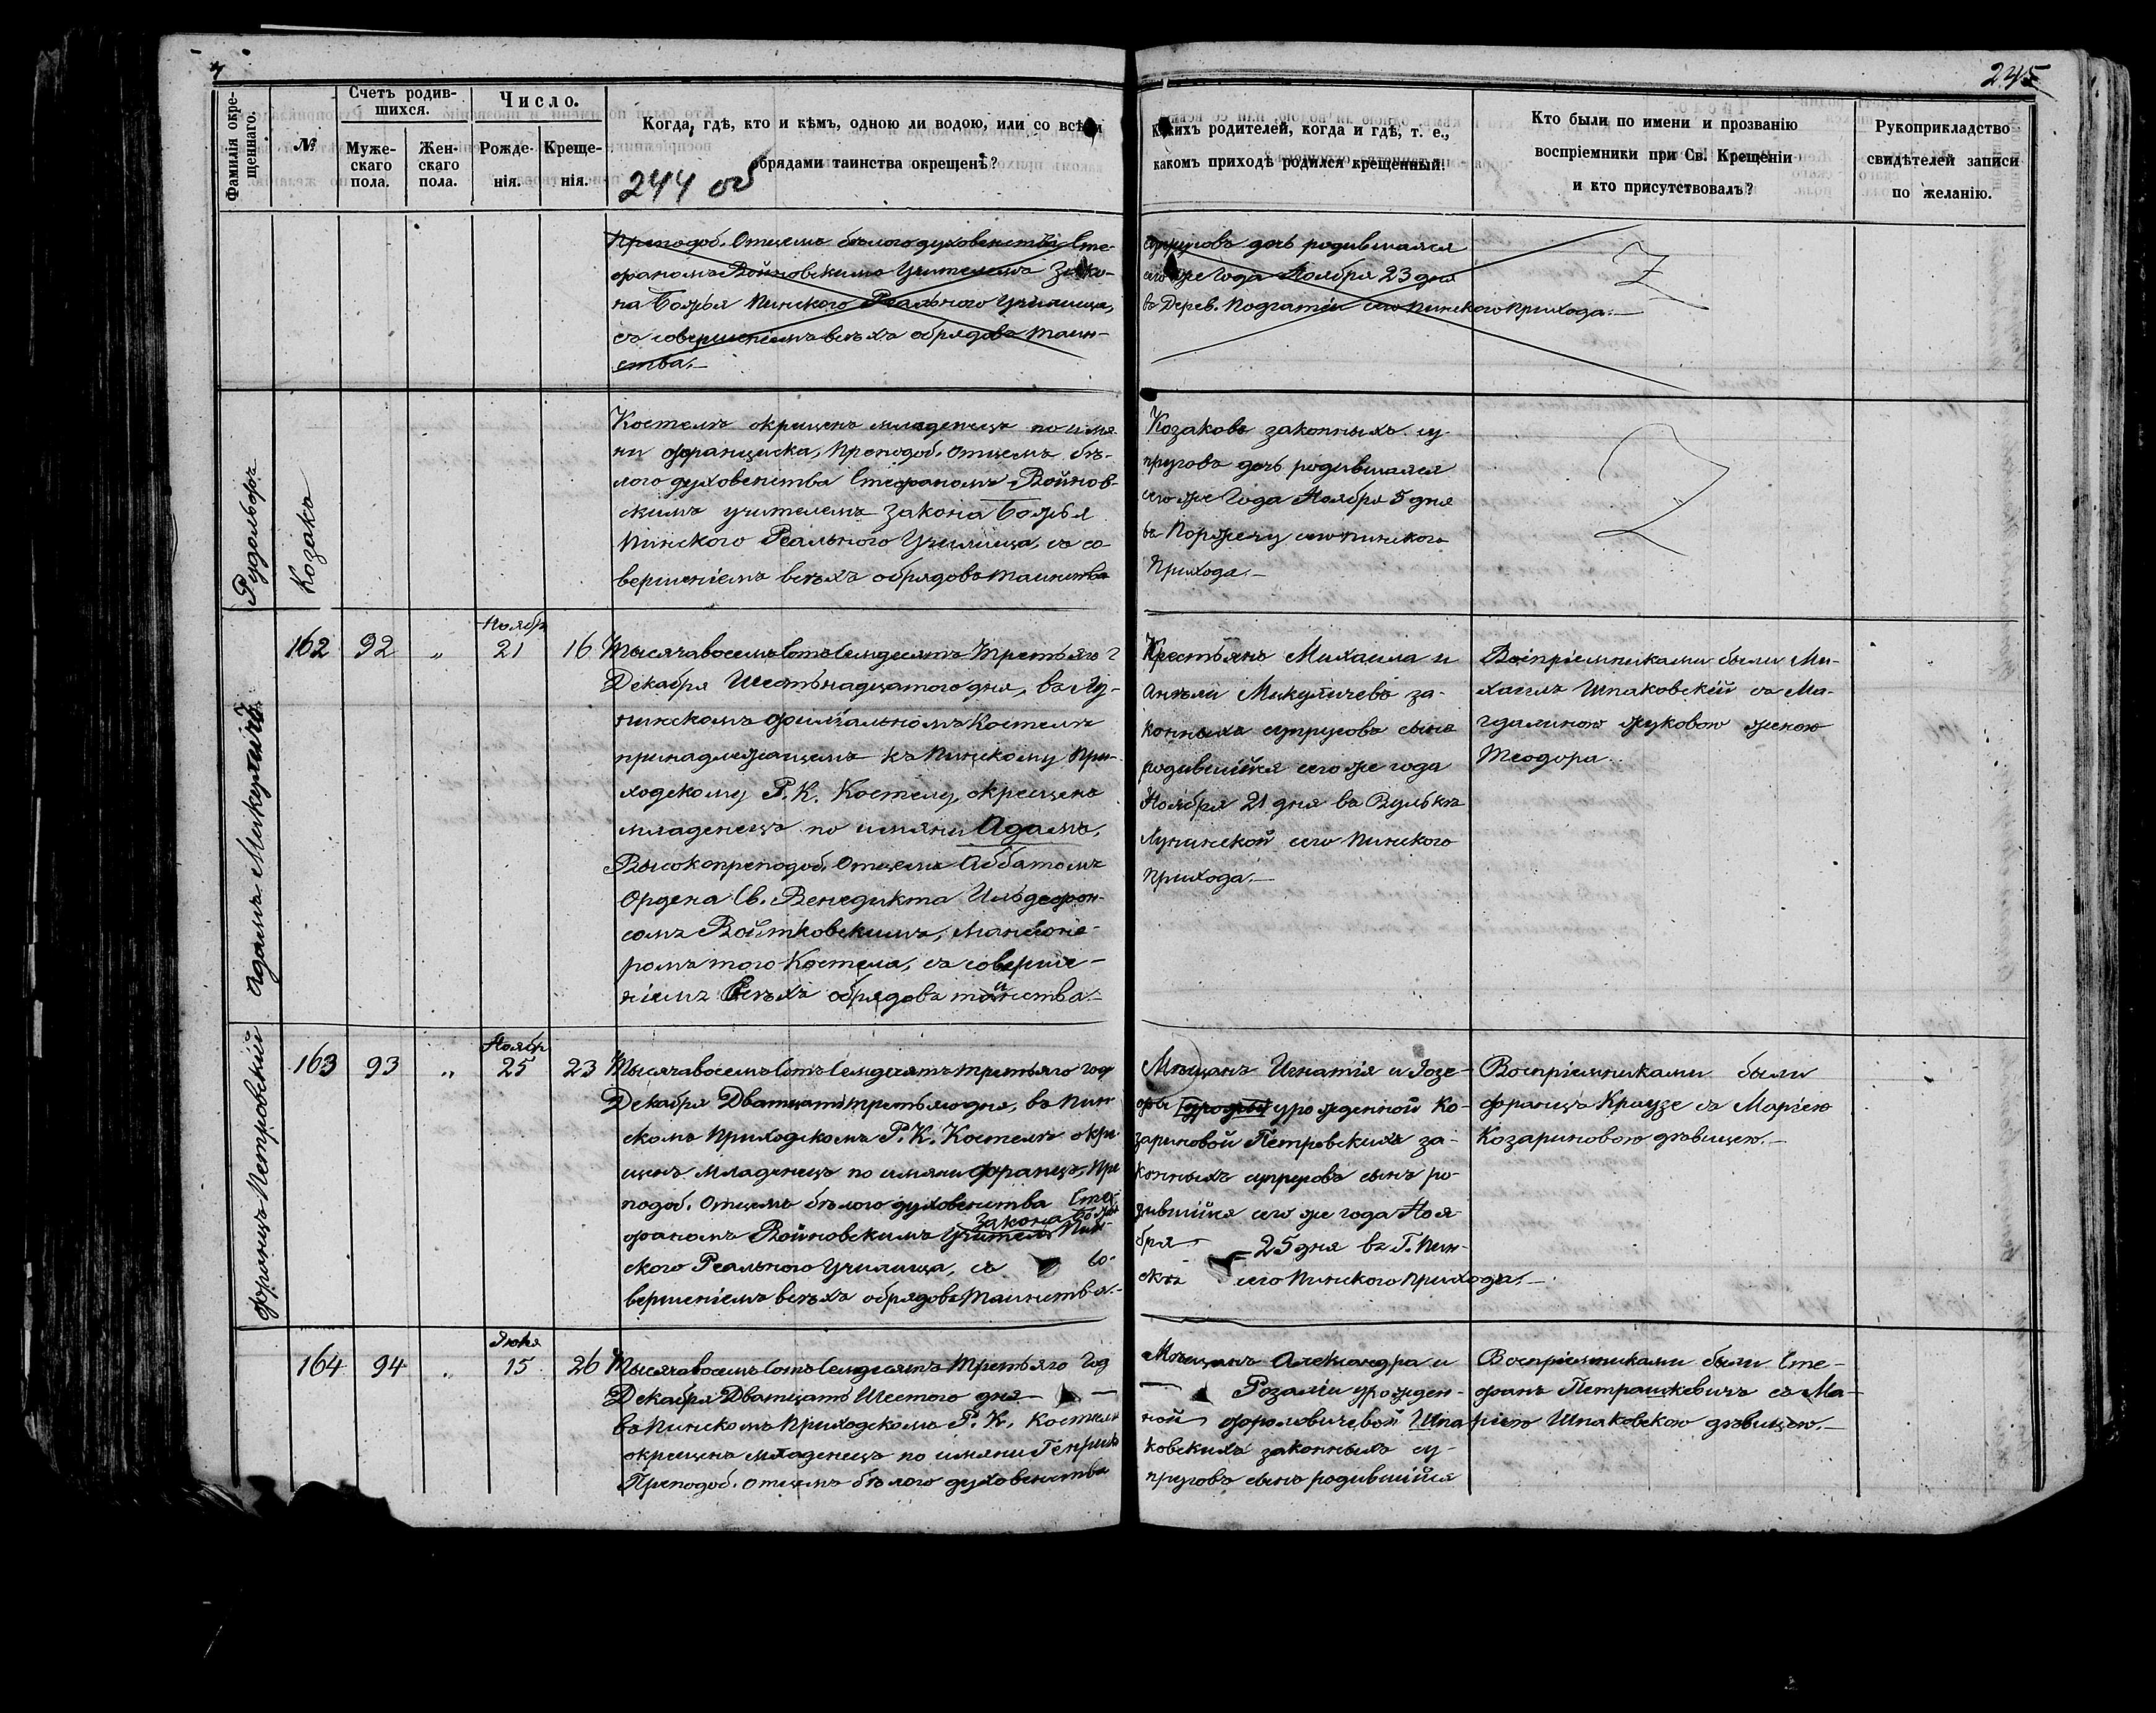 245
Фамилія окре-
щеннаго.
№
Счетъ родив-
шихся.
Муже-
скаго
пола.
Жен-
скаго
пола.
Число.
Рожде-
нія.
Креще-
нія.
Когда, гдѣ, кто и кѣмъ, одною ли водою, или со всѣми
обрядами таинства окрещенъ?
244 об
Какихъ родителей, когда и гдѣ, т. е.,
какомъ приходѣ родился крещенный?
Кто были по имени и прозванію
воспріемники при Св. Крещеніи
и кто присутствовалъ?
Рукоприкладство
свидѣтелей записи
по желанію.
Преподоб. Отцемъ бѣлого духовенства Сте-
фаномъ Войновскимъ Учителемъ Зако-
на Божья Пинского Реального Училища,
съ совершеніемъ всѣхъ обрядовъ таин-
ства.
супруговъ дочь родившаяся
сего же Года Ноября 23 дня
въ Дерев. Подгатьи сего Пинского Прихода.
Рудольфъ
Козакъ
Костелѣ окрещенъ младенецъ по имя
ни Франциска, Преподоб. Отцемъ бѣ-
лого духовенства Стефаномъ Войнов-
скимъ учителемъ Закона Божья
Пинского Реального Училища, съ со
вершеніемъ всѣхъ обрядовъ таинства
Козаковъ законныхъ су-
пруговъ дочь родившаяся
сего же Года Ноября 5 дня
въ Поржечу сего Пинского
Прихода.
Адамъ Микуличъ
162 92 „ Ноябр 21 16
Тысяча восемь Сотъ Семдесятъ Третьяго г
Декабря Шестьнадцатого дня, въ Лу-
нинскомъ филіальномъ Костелѣ
принадлежащемъ къ Пинскому При-
ходскому Р. К. Костелу, окрещенъ
младенецъ по имяни Адамъ,
Высокопреподоб. Отцемъ Аббатомъ
Ордена Св. Венедикта Ильдефон-
сомъ Войтковскимъ, Мансіоне-
ромъ того Костела, съ соверше-
ніемъ всѣхъ обрядовъ таинства.
Крестьянъ Михаила и
Анѣли Микуличевъ за-
конныхъ супруговъ сынъ
родившійся сего же года
Ноября 21 дня въ Вулькѣ
Лунинской сего Пинского
Прихода.
Воспріемниками были Ми-
хаилъ Шпаковскій съ Ма-
гдалиною Жуковою женою
Теодора.
Францъ Петровскій
163 93 „ Ноябр 25 23
Тысяча восемь Сотъ Семдесятъ третьяго год
Декабря Дватцать третьяго дня, въ Пин
скомъ Приходскомъ Р. К. Костелѣ окре
щенъ младенецъ по имяни Францъ, Пре
подоб. Отцемъ бѣлого духовенства Сте-
фаномъ Войновскимъ Учителемъ Закона Божья Пин-
ского Реального Училища, съ со-
вершеніемъ всѣхъ обрядовъ Таинства.
Мѣщанъ Игнатія и Іозе-
фы урожденной Ко-
зариновой Петровскихъ за-
конныхъ супруговъ сынъ ро-
дившійся сего же года Ноя-
бря 25 дня въ Г. Пин-
скѣ сего Пинского Прихода.
Воспріемниками были
Францъ Краузе съ Маріею
Козариновою дѣвицею.
164 94 „ Іюня 15 26
Тысяча восемь Сотъ Семдесятъ Третьяго Год
Декабря Дватцать Шестого дня
въ Пинскомъ Приходскомъ Р. К. Костелѣ
окрещенъ младенецъ по имяни Генрихъ
Преподоб. отцемъ бѣлого духовенства
Мѣщанъ Александра и
Розаліи урожден-
ной Фороловичевой Шпа
ковскихъ законныхъ су-
пруговъ сынъ родившійся
Воспріемниками были Сте-
фанъ Петрашкевичъ съ Ма-
ріею Шпаковскою дѣвицею.